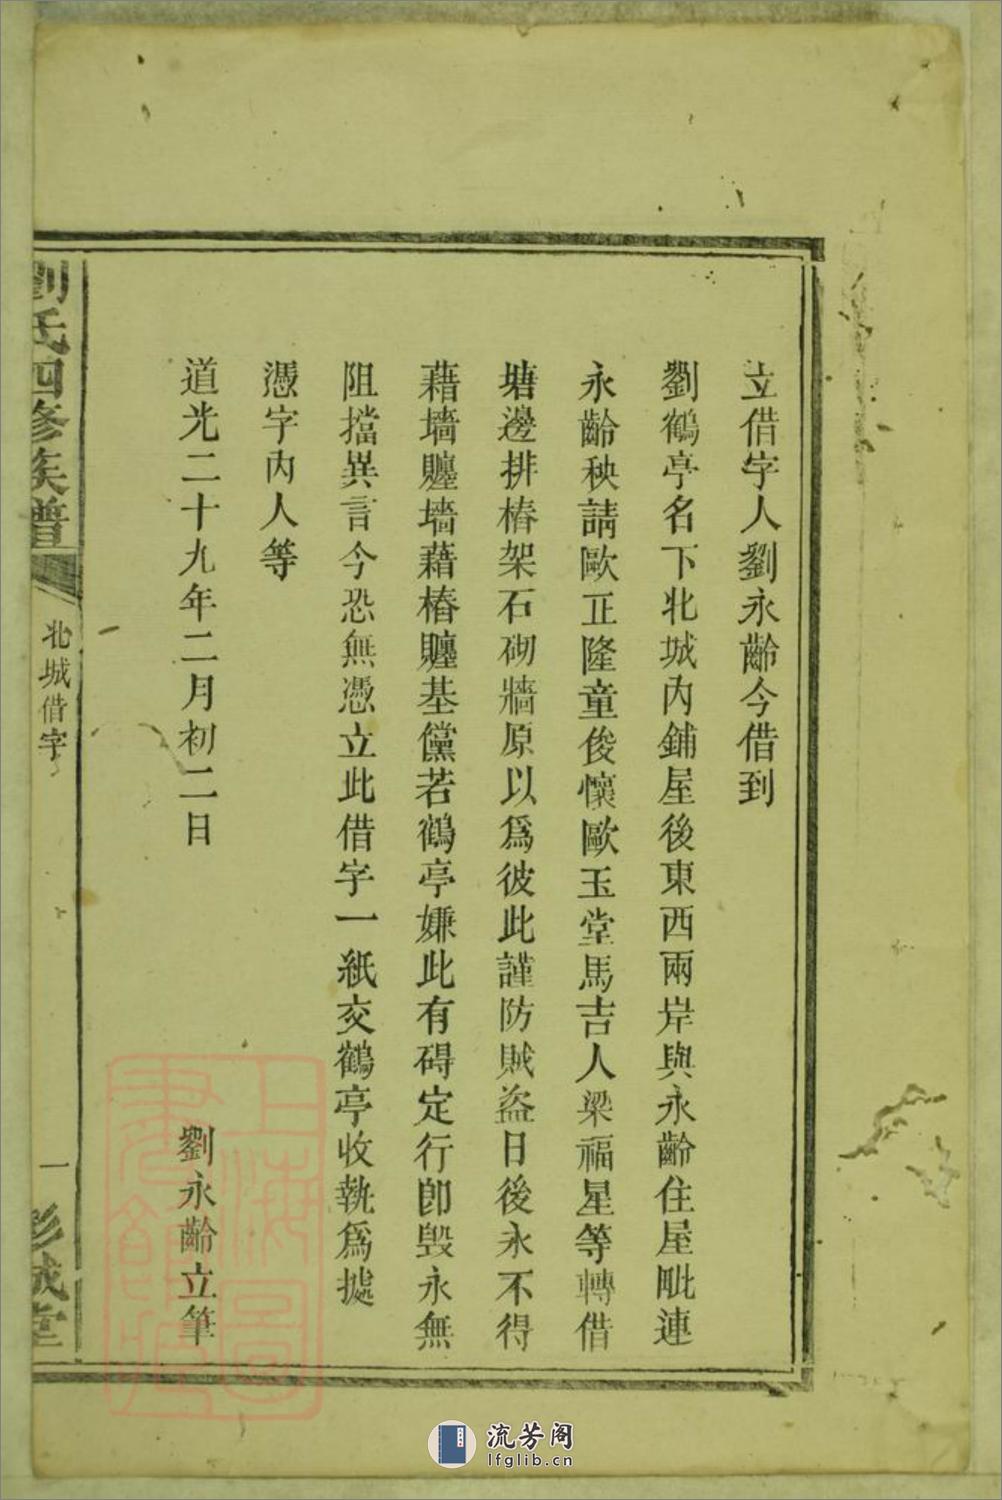 立借字人劉永齡今借到
劉鶴亭名下北城內鋪屋後東西兩岸與永齡住屋毗連
永齡秧請歐正隆童俊懷歐玉堂馬吉人梁福星等轉借
塘邊排樁架石砌牆原以爲彼此謹防賊盗日後永不得
藉墻贃墻藉樁贃基儻若鶴亭嫌此有碍定行卽毀永無
阻擋異言今恐無憑立此借字一紙交鶴亭收執爲據
憑字內人等
道光二十九年二月初二日
劉永齡立筆
劉氏四修族譜
北城借字
一
彭城堂
上海圖書館藏
流芳阁
lfglib.cn